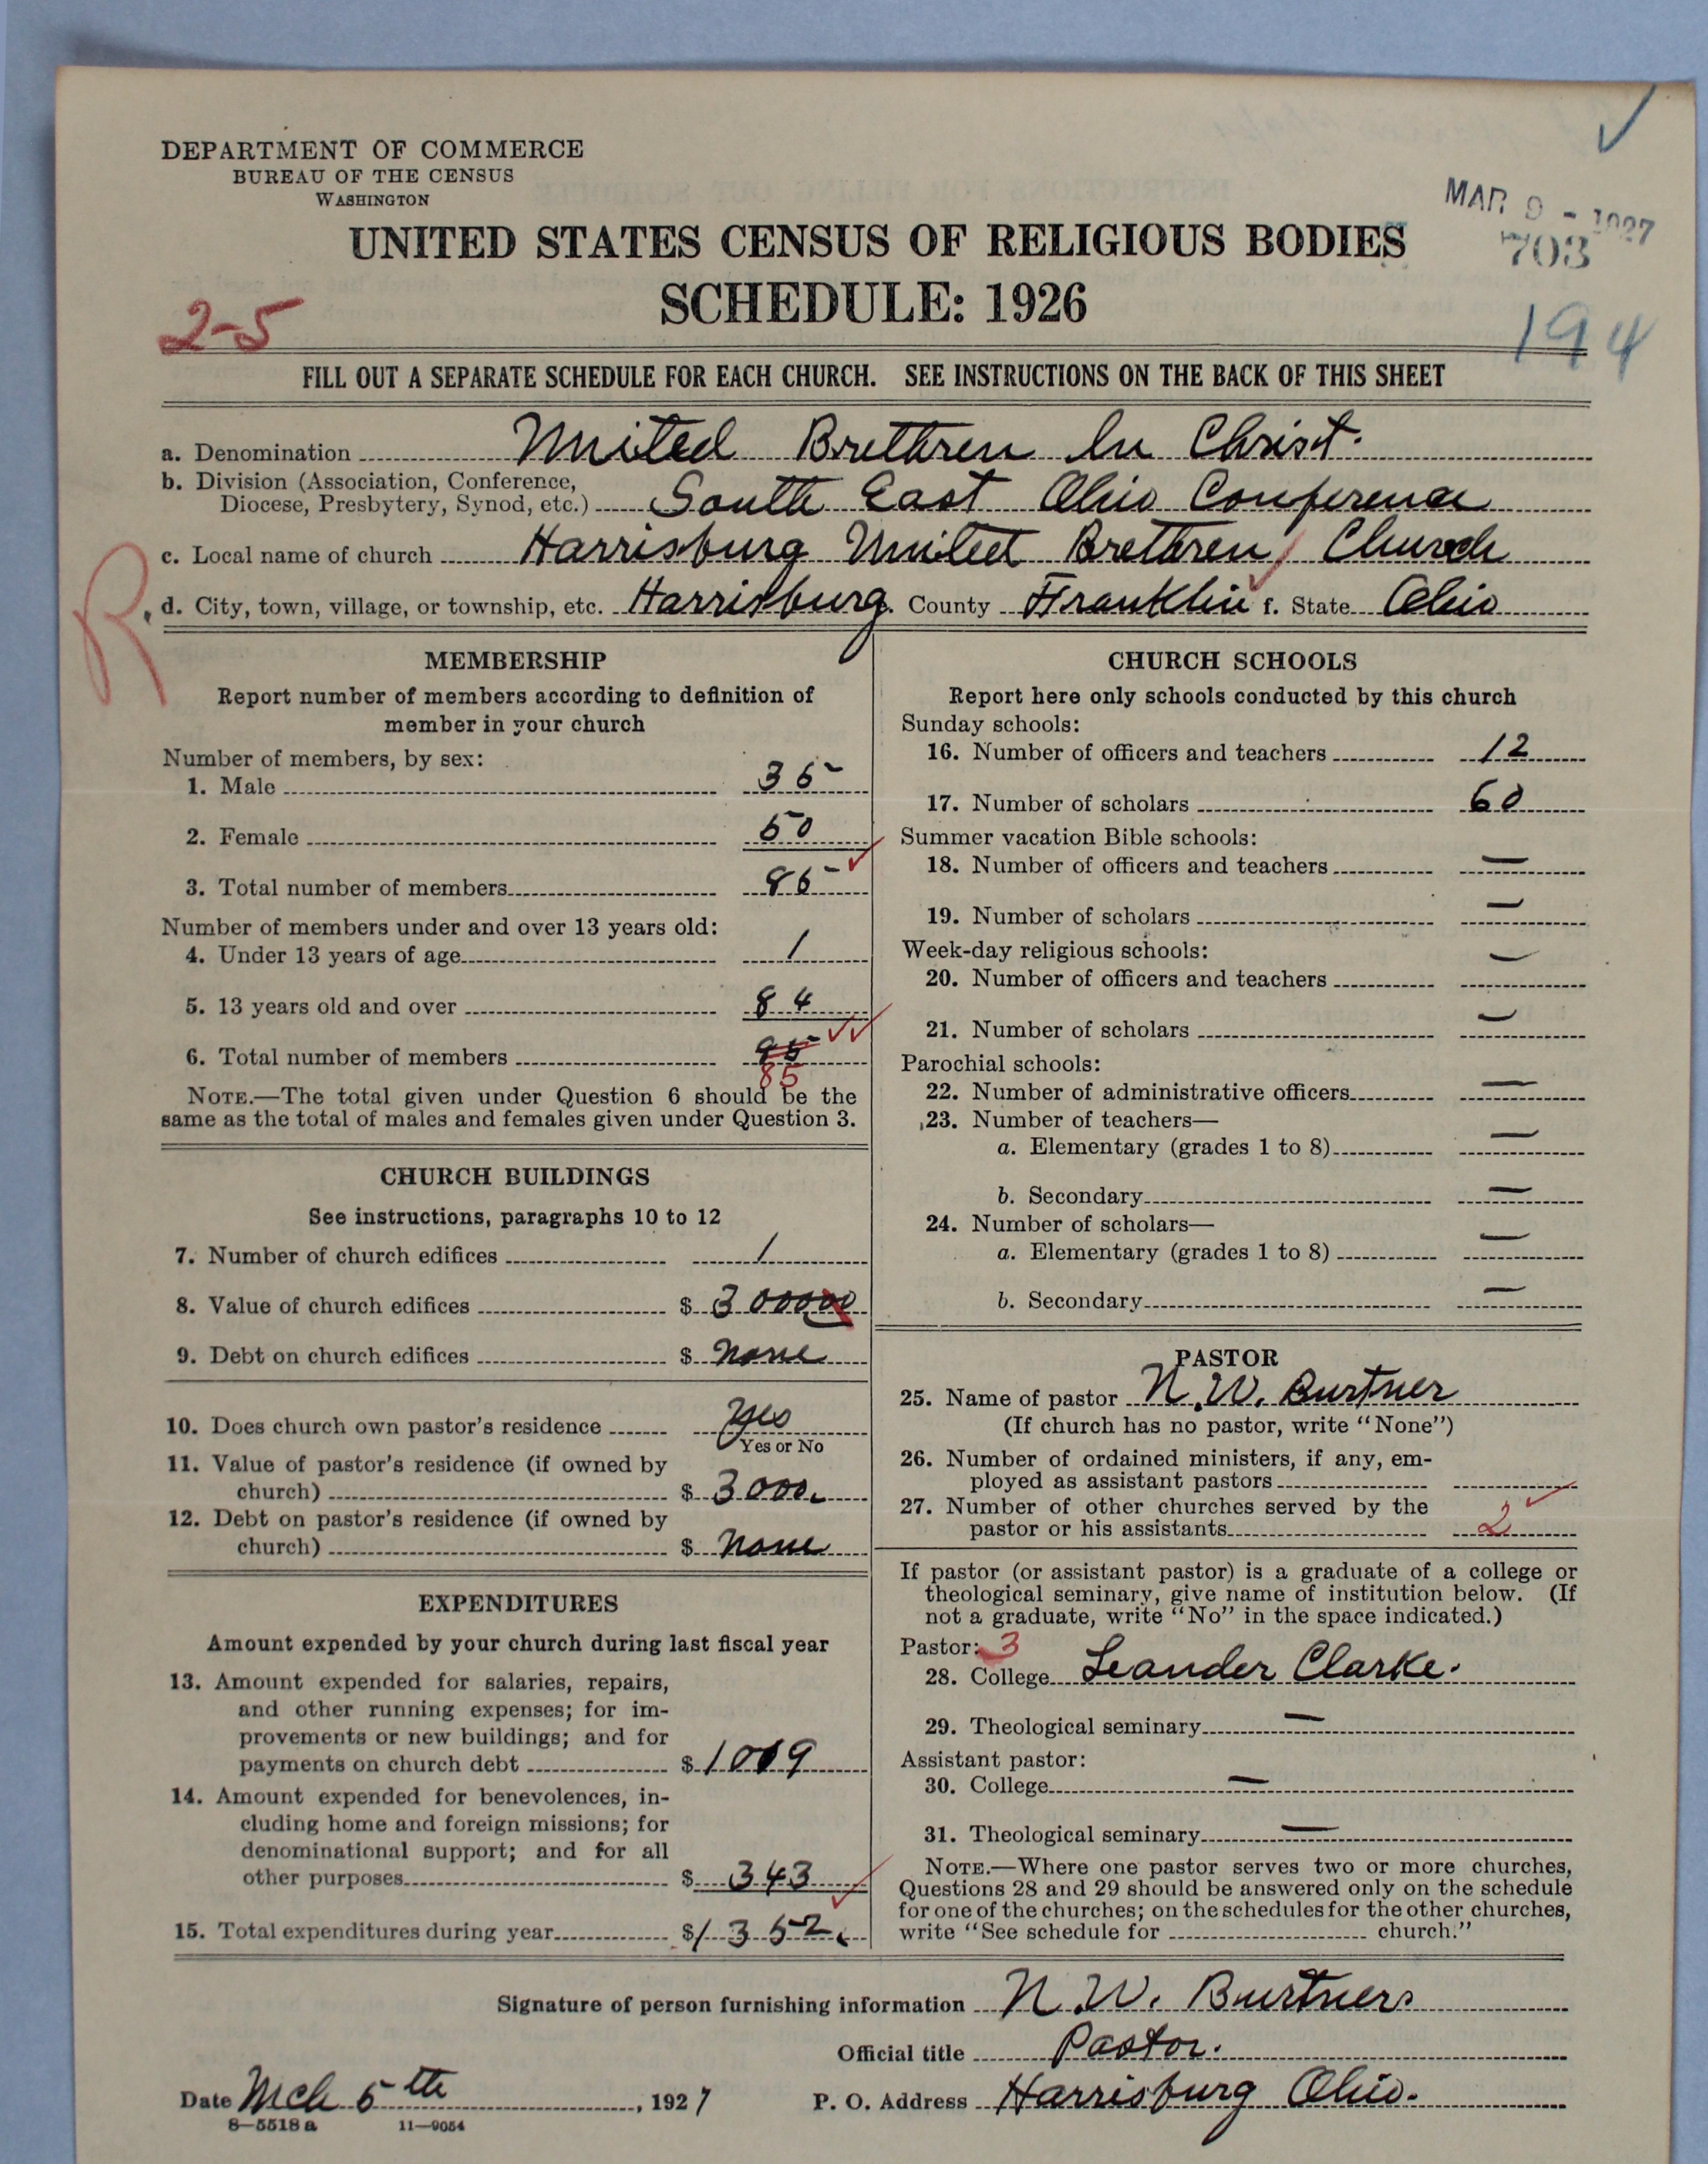 DEPARTMENT OF COMMERCE
BUREAU OF THE CENSUS
WASHINGTON
MAR 9 - 1927
703
UNITED STATES CENSUS OF RELIGIOUS BODIES
SCHEDULE: 1926
2-5
194
FILL OUT A SEPARATE SCHEDULE FOR EACH CHURCH. SEE INSTRUCTIONS ON THE BACK OF THIS SHEET
a. Denomination United Brethren In Christ.
b. Division (Association, Conference,
Diocese, Presbytery, Synod, etc.) South East Ohio Conference
c. Local name of church Harrisburg United Brethren Church
R
d. City, town, village, or township, etc. Harrisburg. County Franklin f. State Ohio
MEMBERSHIP
Report number of members according to definition of
member in your church
Number of members, by sex:
1. Male 35
2. Female 50
3. Total number of members 85
Number of members under and over 13 years old:
4. Under 13 years of age 1
5. 13 years old and over 84
6. Total number of members 95
85
NOTE.—The total given under Question 6 should be the
same as the total of males and females given under Question 3.
CHURCH BUILDINGS
See instructions, paragraphs 10 to 12
7. Number of church edifices 1
8. Value of church edifices $ 300000
9. Debt on church edifices $ none
10. Does church own pastor's residence yes
Yes or No
11. Value of pastor's residence (if owned by
church) $ 3000.
12. Debt on pastor's residence (if owned by
church) $ none
EXPENDITURES
Amount expended by your church during last fiscal year
13. Amount expended for salaries, repairs,
and other running expenses; for im-
provements or new buildings; and for
payments on church debt $ 1009
14. Amount expended for benevolences, in-
cluding home and foreign missions; for
denominational support; and for all
other purposes $ 343
15. Total expenditures during year $ 1352
CHURCH SCHOOLS
Report here only schools conducted by this church
Sunday schools:
16. Number of officers and teachers 12
17. Number of scholars 60
Summer vacation Bible schools:
18. Number of officers and teachers —
19. Number of scholars —
Week-day religious schools:
20. Number of officers and teachers —
21. Number of scholars —
Parochial schools:
22. Number of administrative officers —
23. Number of teachers—
a. Elementary (grades 1 to 8) —
b. Secondary —
24. Number of scholars—
a. Elementary (grades 1 to 8) —
b. Secondary —
PASTOR
25. Name of pastor N. W. Burtner
(If church has no pastor, write "None")
26. Number of ordained ministers, if any, em-
ployed as assistant pastors
27. Number of other churches served by the
pastor or his assistants 2
If pastor (or assistant pastor) is a graduate of a college or
theological seminary, give name of institution below. (If
not a graduate, write "No" in the space indicated.)
Pastor: 3
28. College Leander Clarke.
29. Theological seminary —
Assistant pastor:
30. College —
31. Theological seminary —
NOTE.—Where one pastor serves two or more churches,
Questions 28 and 29 should be answered only on the schedule
for one of the churches; on the schedules for the other churches,
write "See schedule for church."
Signature of person furnishing information N. W. Burtner
Official title Pastor.
Date Mch 5th, 1927
P. O. Address Harrisburg Ohio.
8—5518 a 11—9054